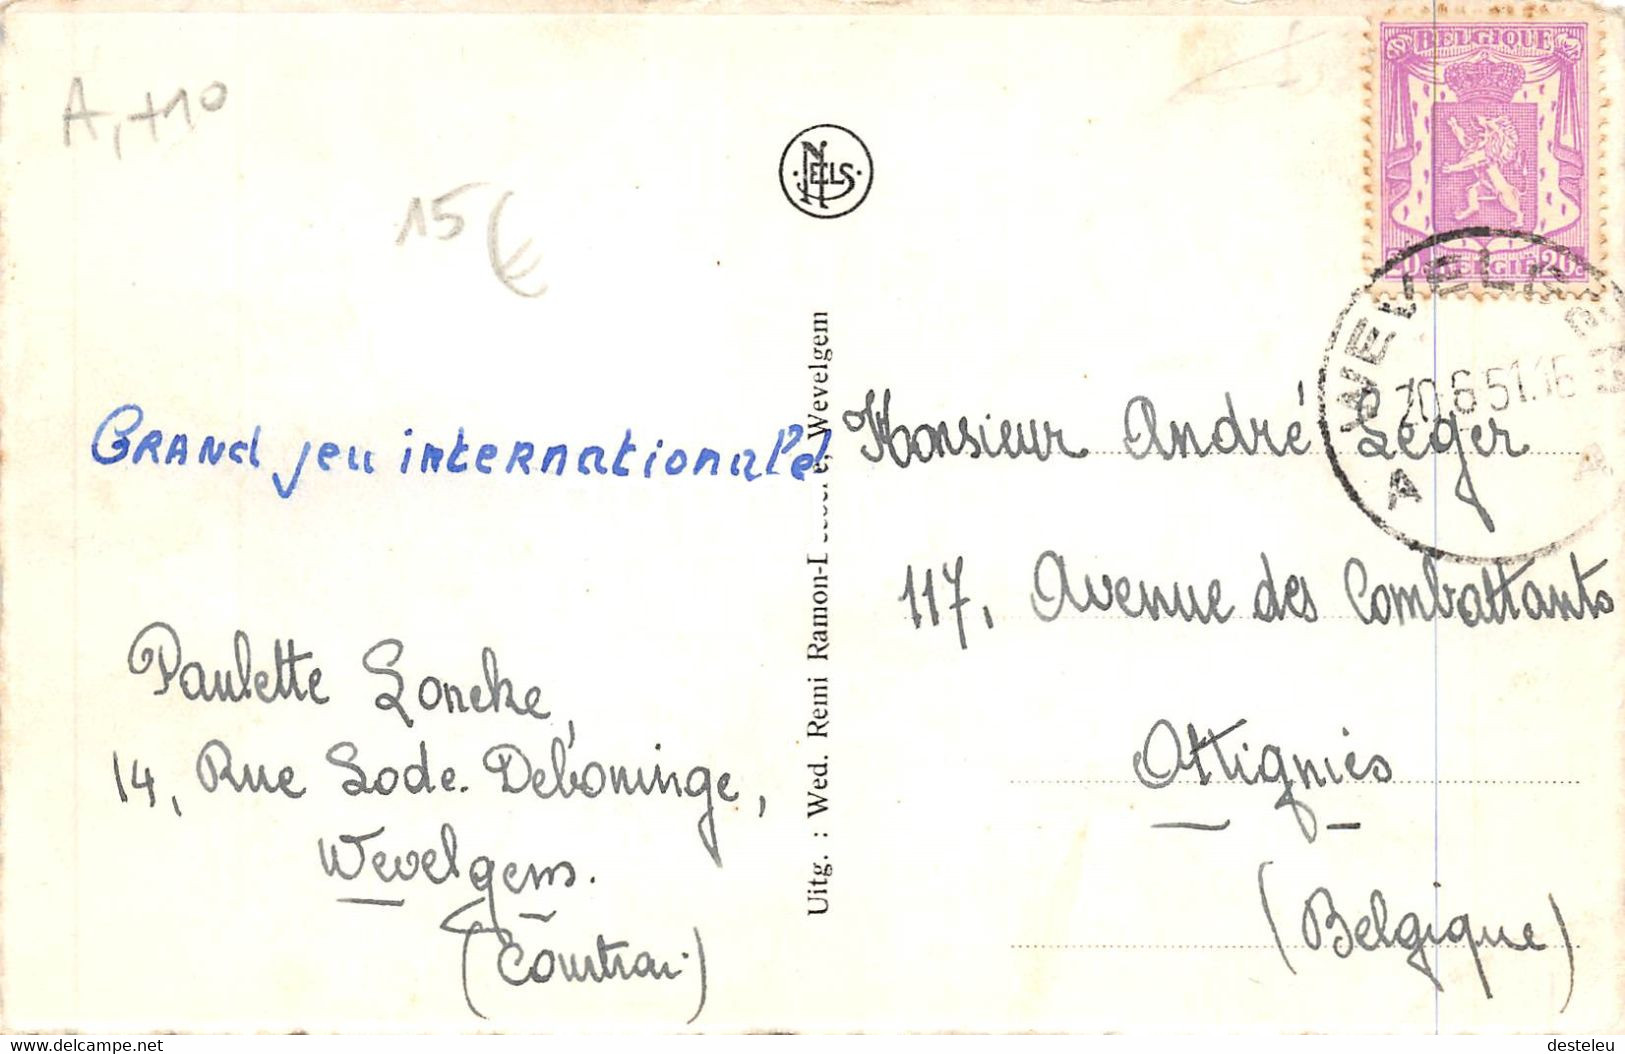 A, +10
15 €
NELS
BELGIQUE
20c BELGIE 20c
WEVELGEM
A A
GRAND jeu internationale
Uitg. : Wed. Remi Ramon- Wevelgem
Monsieur André Léger
117, Avenue des Combattants
Ottignies
(Belgique)
Paulette Loncke,
14, Rue Lode. Deboninge,
Wevelgem.
(Courtrai)
www.delcampe.net
desteleu